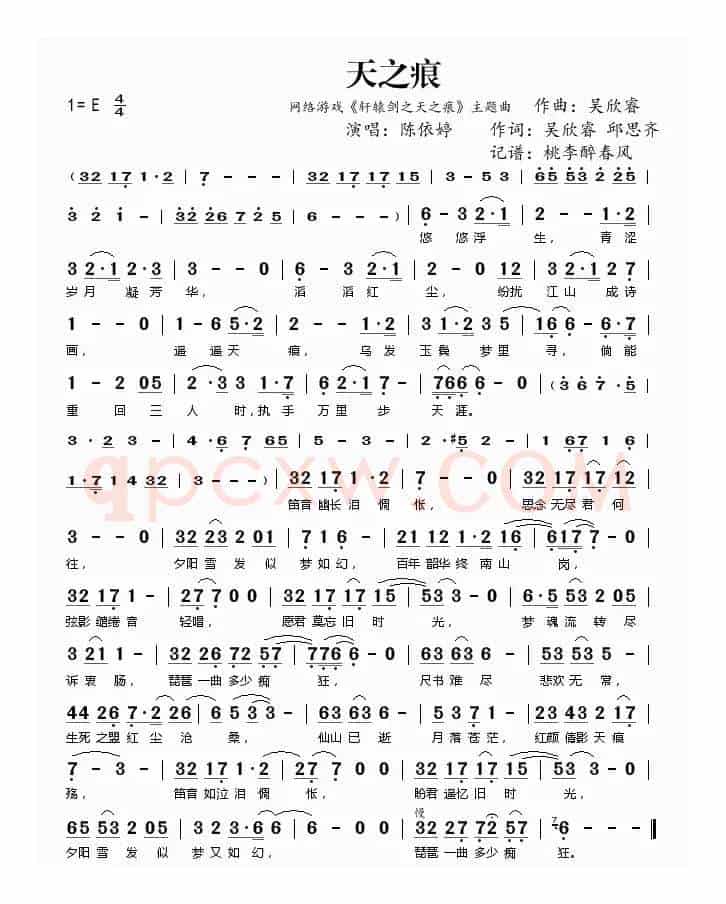 天之痕
1= E 4/4 网络游戏《轩辕剑之天之痕》主题曲 作曲：吴欣睿
演唱：陈依婷 作词：吴欣睿 邱思齐
记谱：桃李醉春风
(32 17 1·2 | 7 - - - | 32 17 17 15 | 3 - 53 | 65 53 2 25 |
3 2 1 - | 32 26 7 25 | 6 - - -) | 6 - 3 2·1 | 2 - - 1·2 |
悠 悠浮 生， 青涩
3 2·1 2·3 | 3 - - 0 | 6 - 3 2·1 | 2 - 0 12 | 3 2·1 2 7 |
岁月 凝芳 华， 滔 滔红 尘， 纷扰 江山 成诗
1 - - 0 | 1 - 6 5·2 | 2 - - 1·2 | 3 1·2 35 | 16 6 - 6·7 |
画， 遥 遥天 痕， 乌发 玉鬓 梦里 寻，倘能
1 - 2 05 | 2·3 3 1·7 | 6 1·2 2·7 | 7666 - 0 | (3 6 7·5 |
重 回三 人 时，执手 万里 步 天涯。
3·2 3 - | 4·6 7 65 | 5 - - - | 2·#5 2 - | 1 67 1 6 |
1·7 14 32 | 3 - - -) | 32 17 1·2 | 7 - - 0 | 32 17 17 12 |
笛音 幽长 泪 惆 怅， 思念 无尽 君 何
3 - - 0 | 32 23 2 01 | 7 1 6 - | 21 12 1·2 16 | 617 7 - - |
往， 夕阳 雪 发 似 梦如幻， 百年 韶华 终 南山 岗，
32 17 1 - | 27 7 0 0 | 32 17 17 15 | 53 3 - 0 | 6·5 53 2 05 |
弦影 缱绻 音 轻唱， 愿君 莫忘 旧 时 光， 梦 魂 流 转 尽
3 21 1 - | 32 26 72 57 | 776 6 - | 63 63 6 6 | 53 53 5 - |
诉 衷 肠， 琵琶 一曲 多少 痴 狂， 尺书 难 尽 悲欢 无 常，
44 26 7·2 26 | 6 53 3 - | 63 63 6 - | 53 71 - | 22 17 1 6 |
生死 之盟 红 尘 沧 桑， 仙山 已 逝 月 落 苍茫， 红颜 倩影 天 痕
7 - 3 - | 32 17 1·2 | 7 - - 0 | 32 17 17 15 | 53 3 - 0 |
殇， 笛音 如泣 泪 惆 怅， 盼君 遥忆 旧 时 光，
慢
65 53 2 05 | 3·2 3·6 6 | 6 - - 0 | 32 27 72 57 | 6 - - ‖
夕阳 雪 发 似 梦 又 如 幻， 琵琶 一曲 多少 痴 狂。
qpcxw.COM